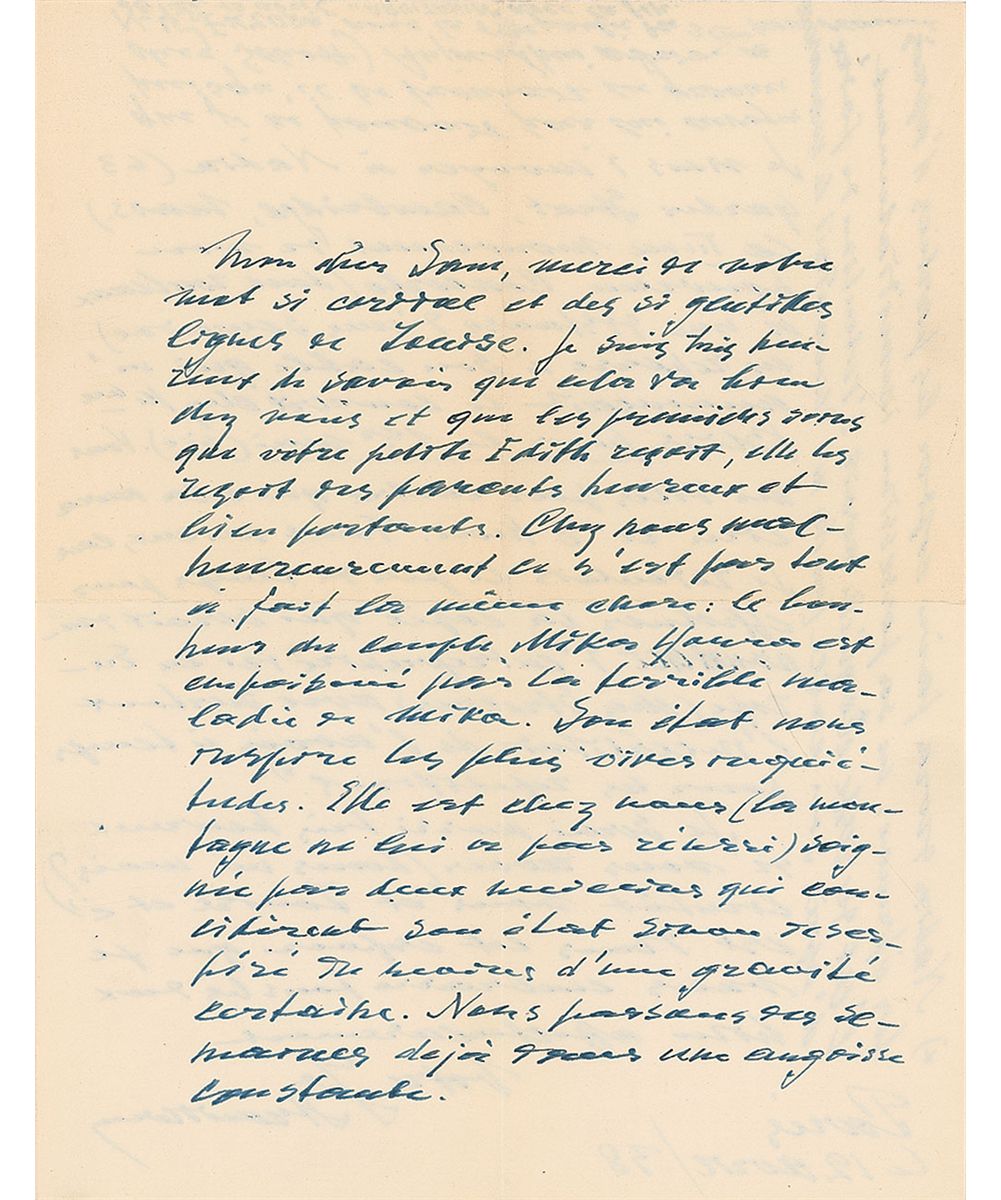 Mon cher Sam, merci de votre
mot si cordial et des si gentilles
lignes de Louise. Je suis très heu-
reux de savoir que cela va bien
chez vous et que les premiers soins
que votre petite Edith reçoit, elle les
reçoit des parents heureux et
bien portants. Chez nous mal-
heureusement ce n'est pas tout
à fait la même chose: le bon-
heur du couple Mika Yourra est
empoisonné par la terrible ma-
ladie de Mika. Son état nous
inspire les plus vives inquié-
tudes. Elle est chez nous (la mon-
tagne ne lui a pas réussi) soig-
née par deux médecins qui con-
sidèrent son état sinon déses-
péré du moins d'une gravité
certaine. Nous passons des se-
maines déjà dans une angoisse
constante.